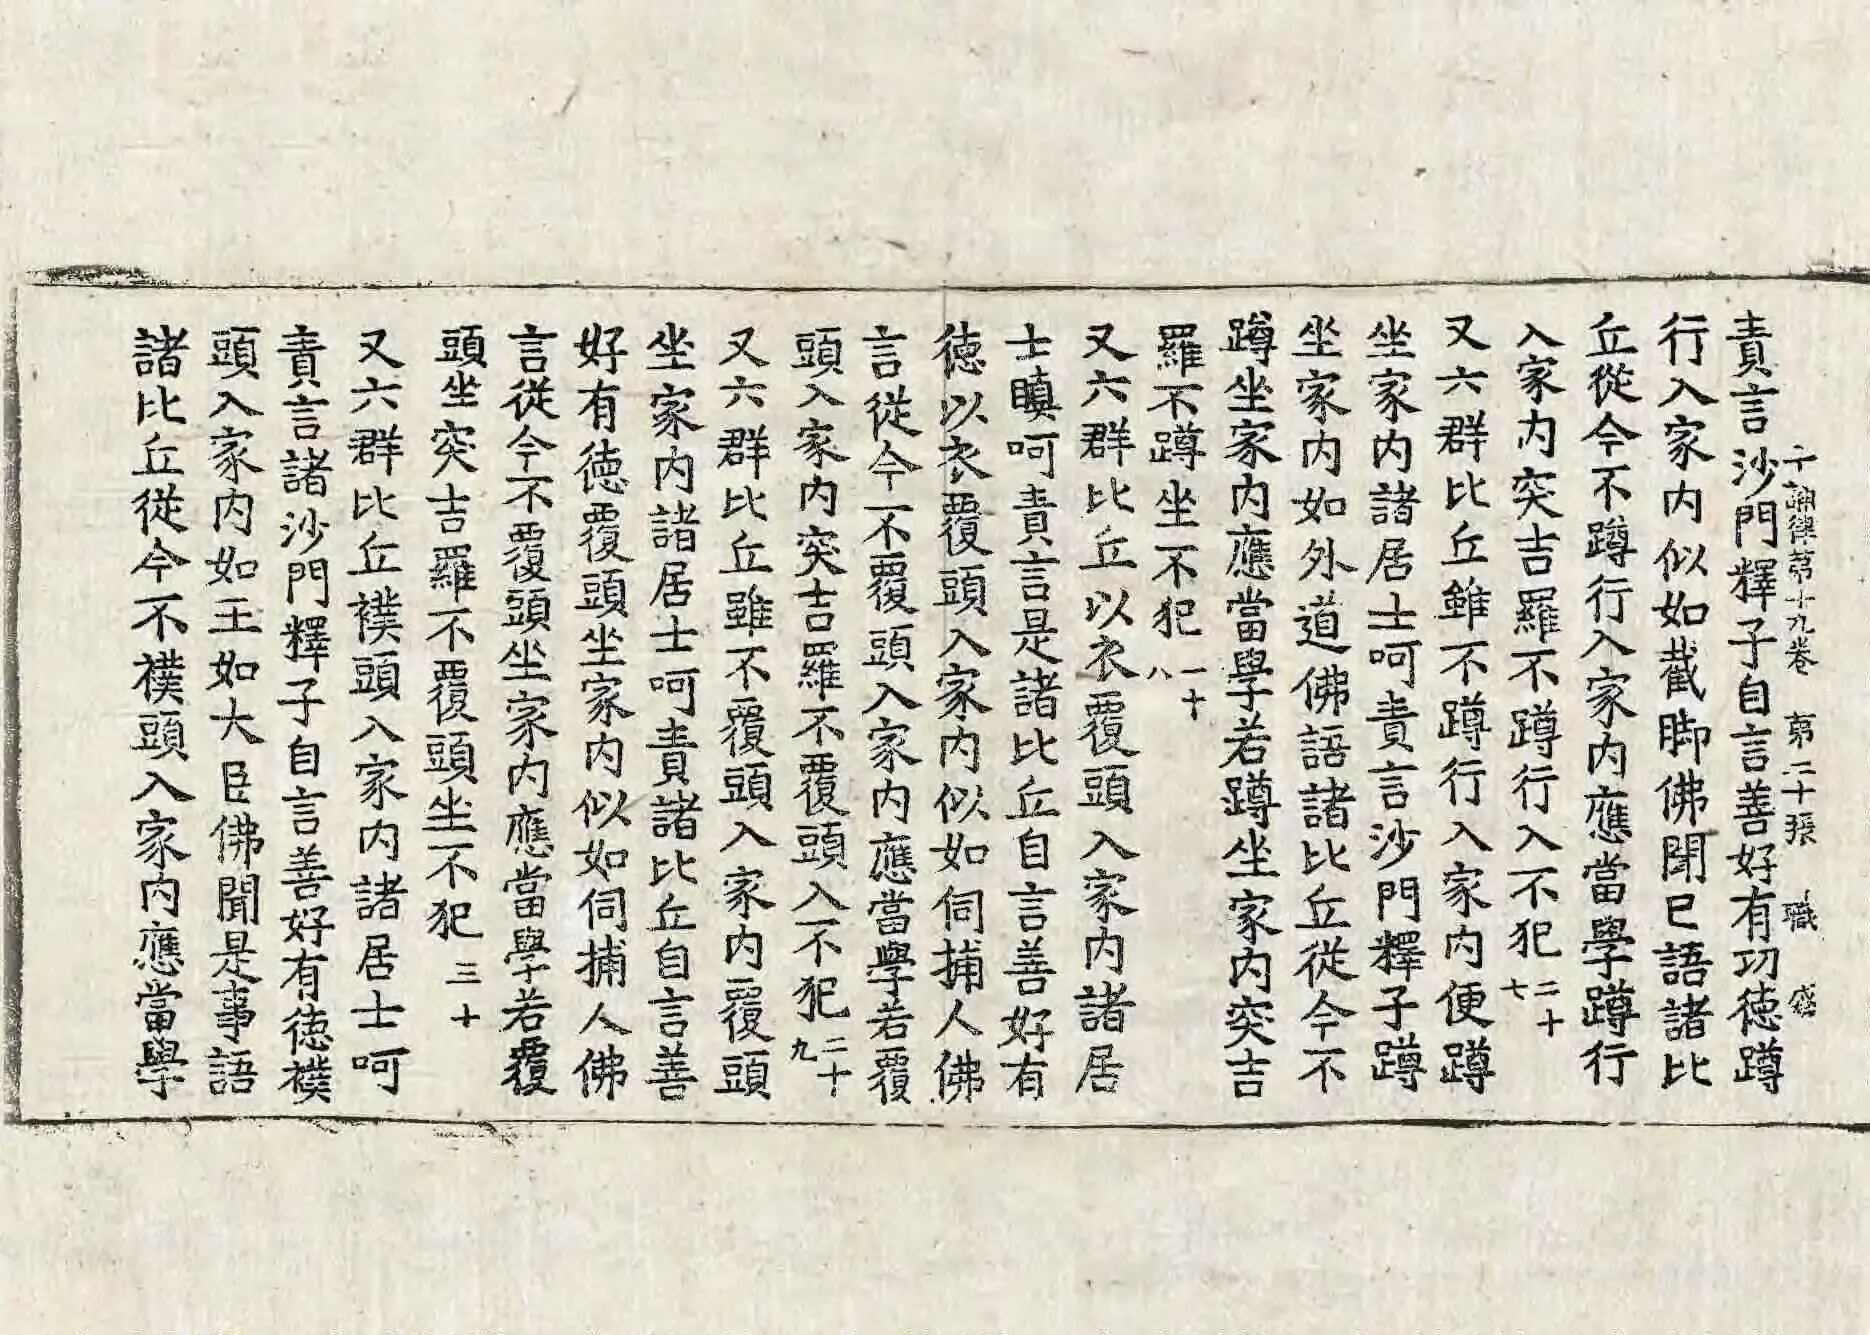 十誦律第十九卷　第二十張　職　盛
責言沙門釋子自言善好有功徳蹲
行入家内似如截脚佛聞已語諸比
丘從今不蹲行入家内應當學蹲行
入家内突吉羅不蹲行入不犯二十七
又六群比丘雖不蹲行入家内便蹲
坐家内諸居士呵責言沙門釋子蹲
坐家内如外道佛語諸比丘從今不
蹲坐家内應當學若蹲坐家内突吉
羅不蹲坐不犯一十八
又六群比丘以衣覆頭入家内諸居
士瞋呵責言是諸比丘自言善好有
徳以衣覆頭入家内似如伺捕人佛
言從今不覆頭入家内應當學若覆
頭入家内突吉羅不覆頭入不犯二十九
又六群比丘雖不覆頭入家内覆頭
坐家内諸居士呵責諸比丘自言善
好有徳覆頭坐家内似如伺捕人佛
言從今不覆頭坐家内應當學若覆
頭坐突吉羅不覆頭坐不犯三十
又六群比丘襆頭入家内諸居士呵
責言諸沙門釋子自言善好有徳襆
頭入家内如王如大臣佛聞是事語
諸比丘從今不襆頭入家内應當學